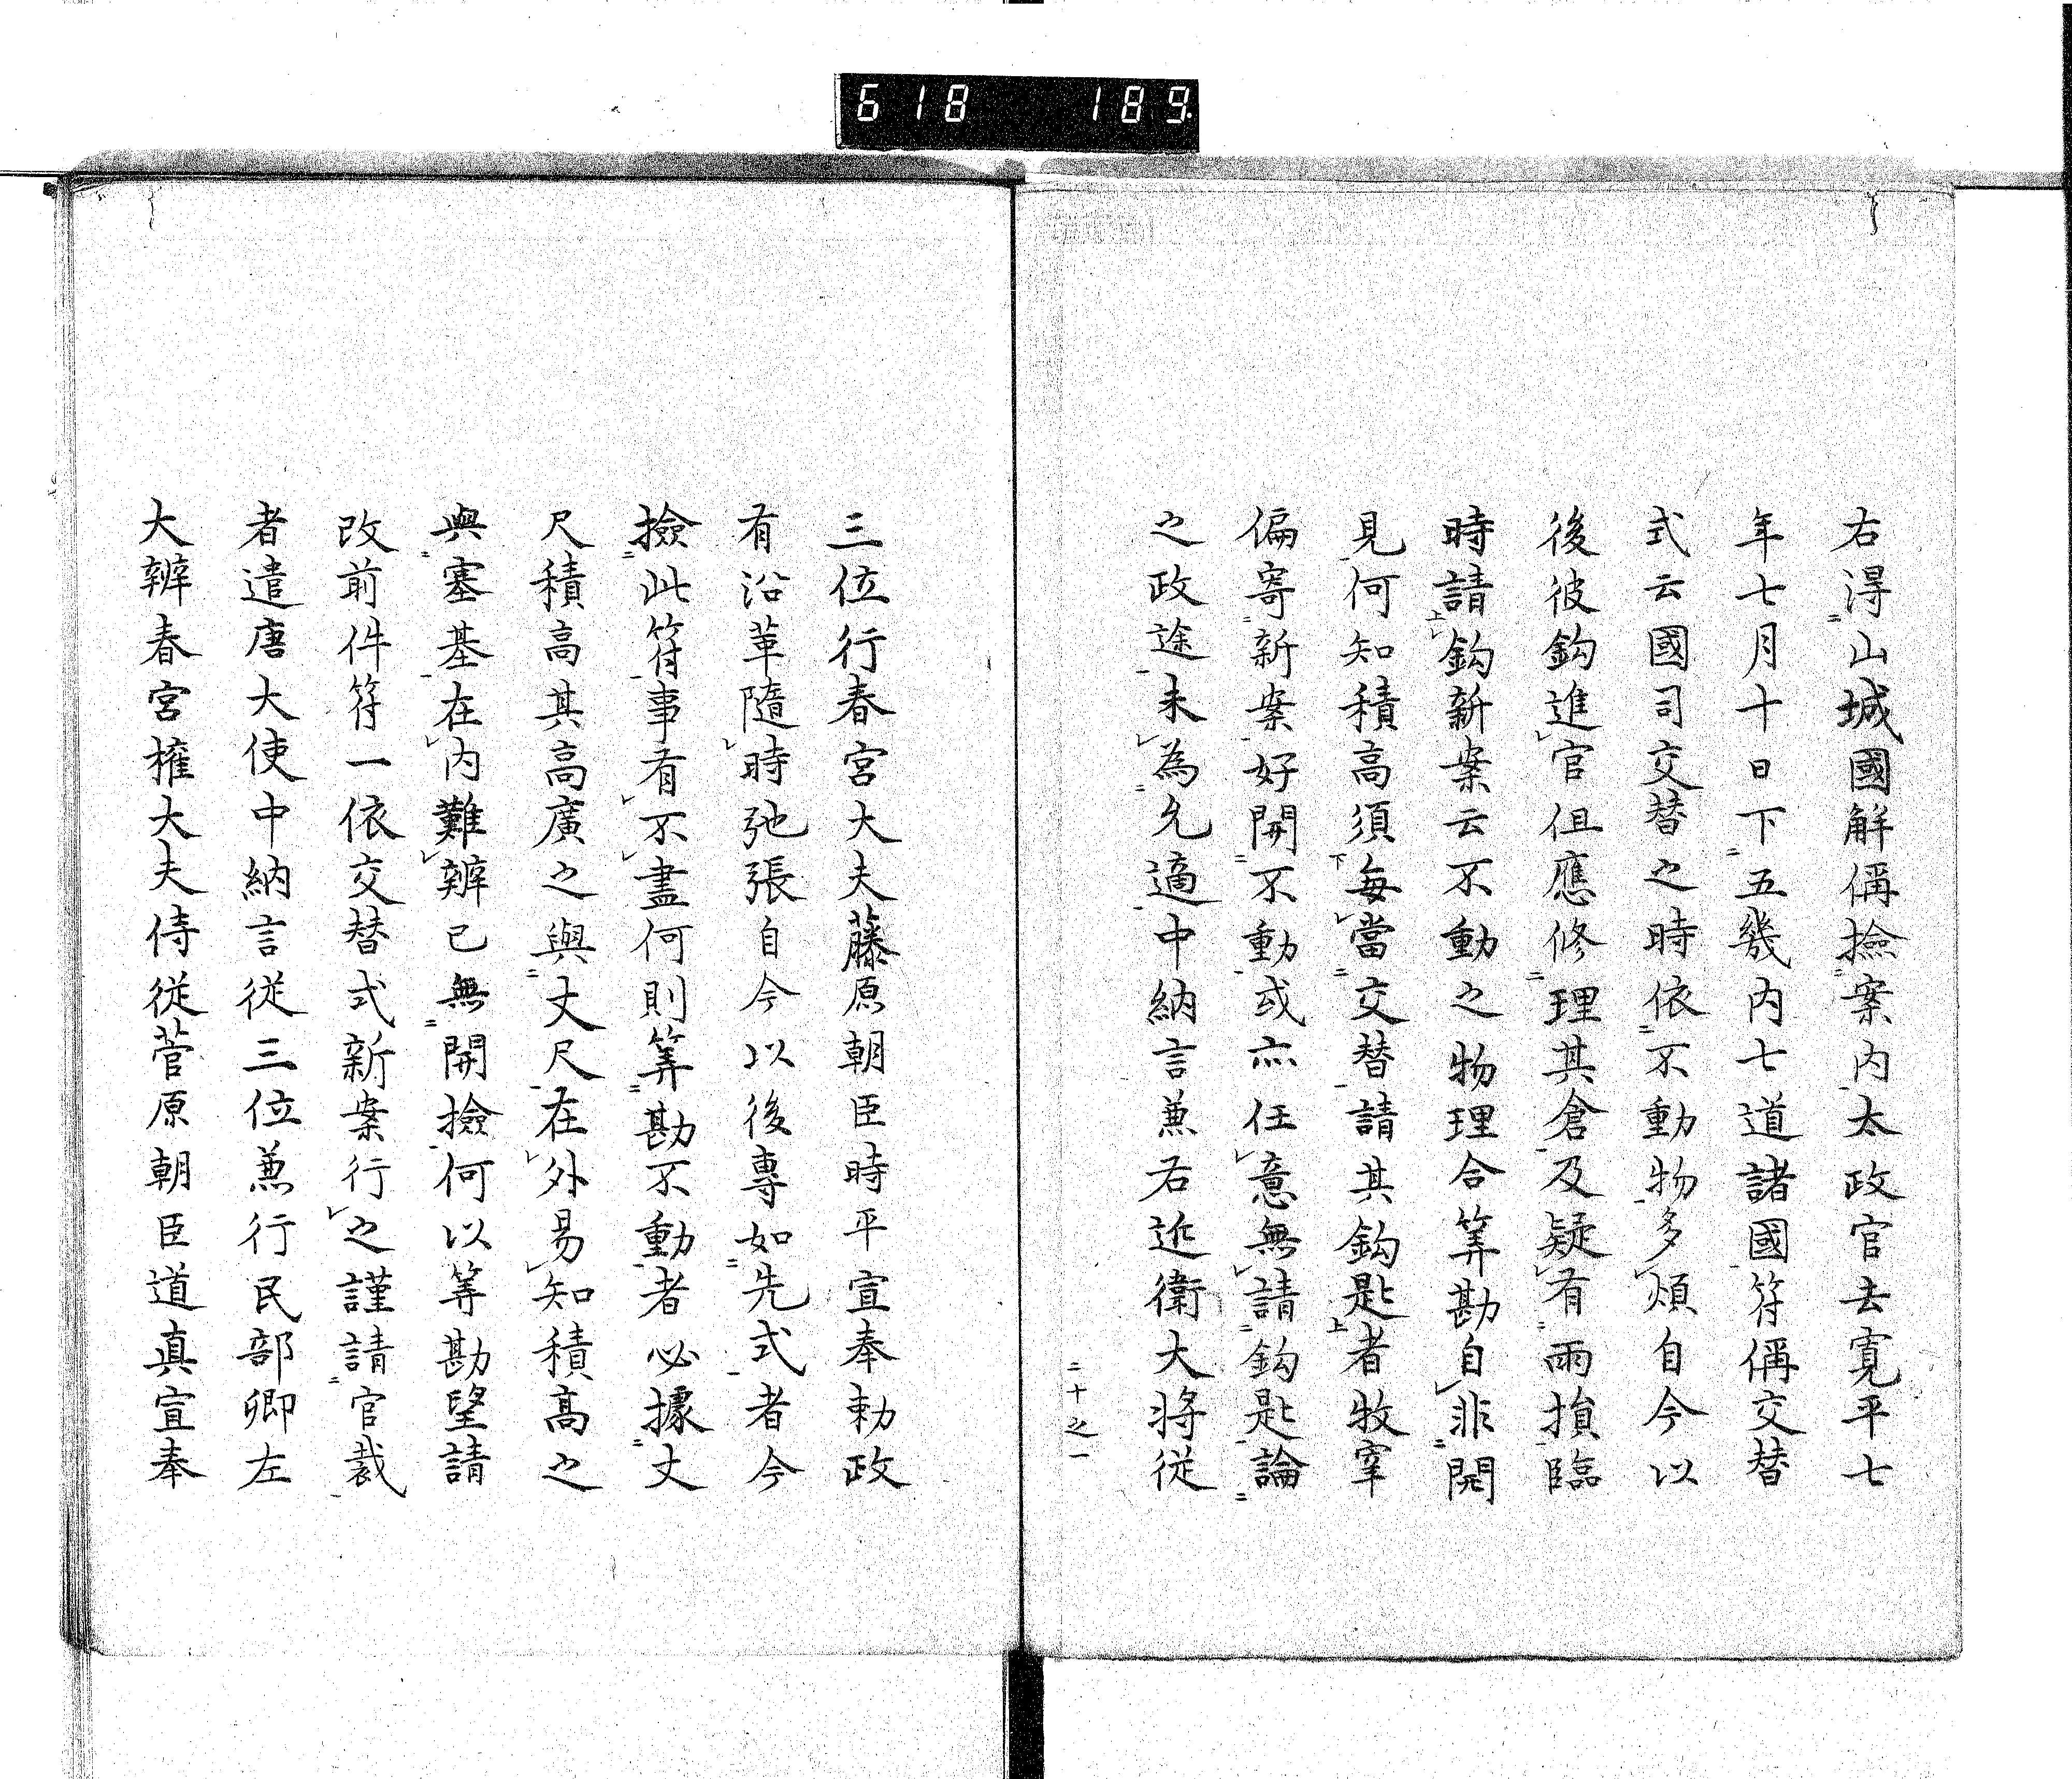 618 189
右得山城國解偁撿案内太政官去寛平七
年七月十日下五畿内七道諸國符偁交替
式云國司交替之時依不動物多煩自今以
後彼鈎進官但應修理其倉及疑有雨損臨
時請鈎新案云不動之物理合筭勘自非開
見何知積高須每當交替請其鈎匙者牧宰
偏寄新案好開不動或亦任意無請鈎匙論
之政途未為允適中納言兼右近衛大将從
二十之一
三位行春宮大夫藤原朝臣時平宣奉勅政
有沿革隨時弛張自今以後專如先式者今
撿此符事有不盡何則筭勘不動者必據丈
尺積高其高廣之與丈尺在外易知積高之
與塞基在内難辨已無開撿何以筭勘望請
改前件符一依交替式新案行之謹請官裁
者遣唐大使中納言從三位兼行民部卿左
大辨春宮權大夫侍從菅原朝臣道真宣奉